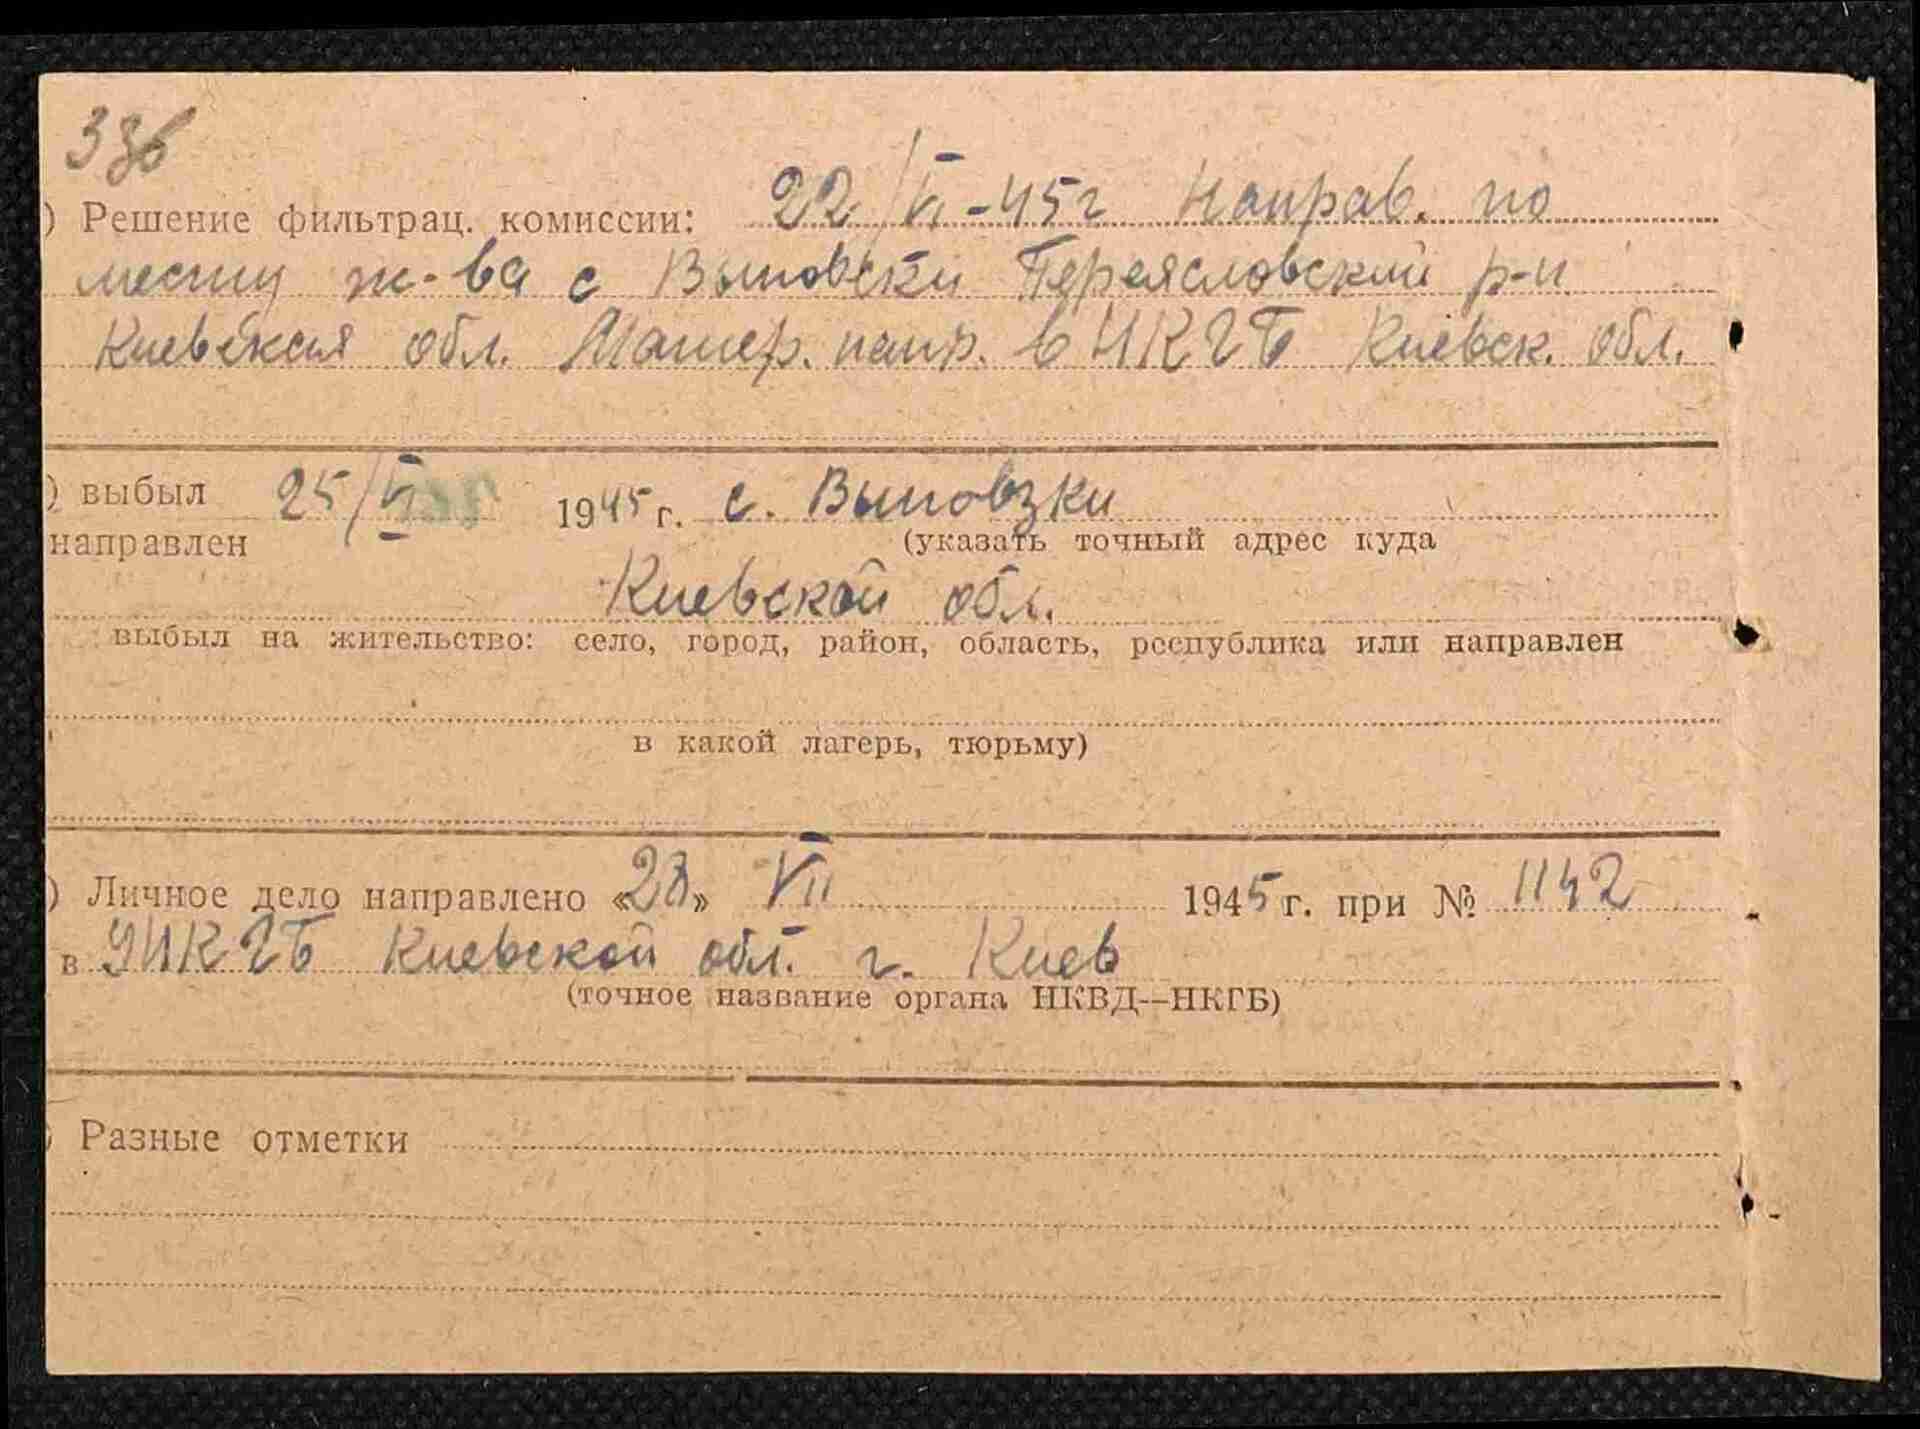 336
) Решение фильтрац. комиссии: 22/VI-45г Направ. по
месту ж-ва с Выповзки Переясловский р-н
Киевская обл. Матер. напр. в НКГБ Киевск. обл.
) выбыл 25/VI 1945 г. с. Выповзки
направлен (указать точный адрес куда
Киевской обл.
выбыл на жительство: село, город, район, область, республика или направлен
в какой лагерь, тюрьму)
) Личное дело направлено «28» VII 1945 г. при № 1142
в УНКГБ Киевской обл. г. Киев
(точное название органа НКВД—НКГБ)
) Разные отметки